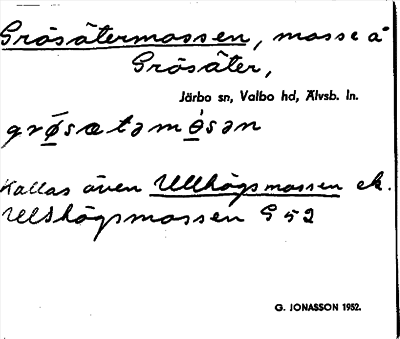 Gräsätermossen, mosse å
Gräsäter,
Järbo sn, Valbo hd, Älvsb. ln.
grø̄sætəmøsən
Kallas även Ullhögsmossen ek.
Ullshögsmossen G52
G. JONASSON 1952.